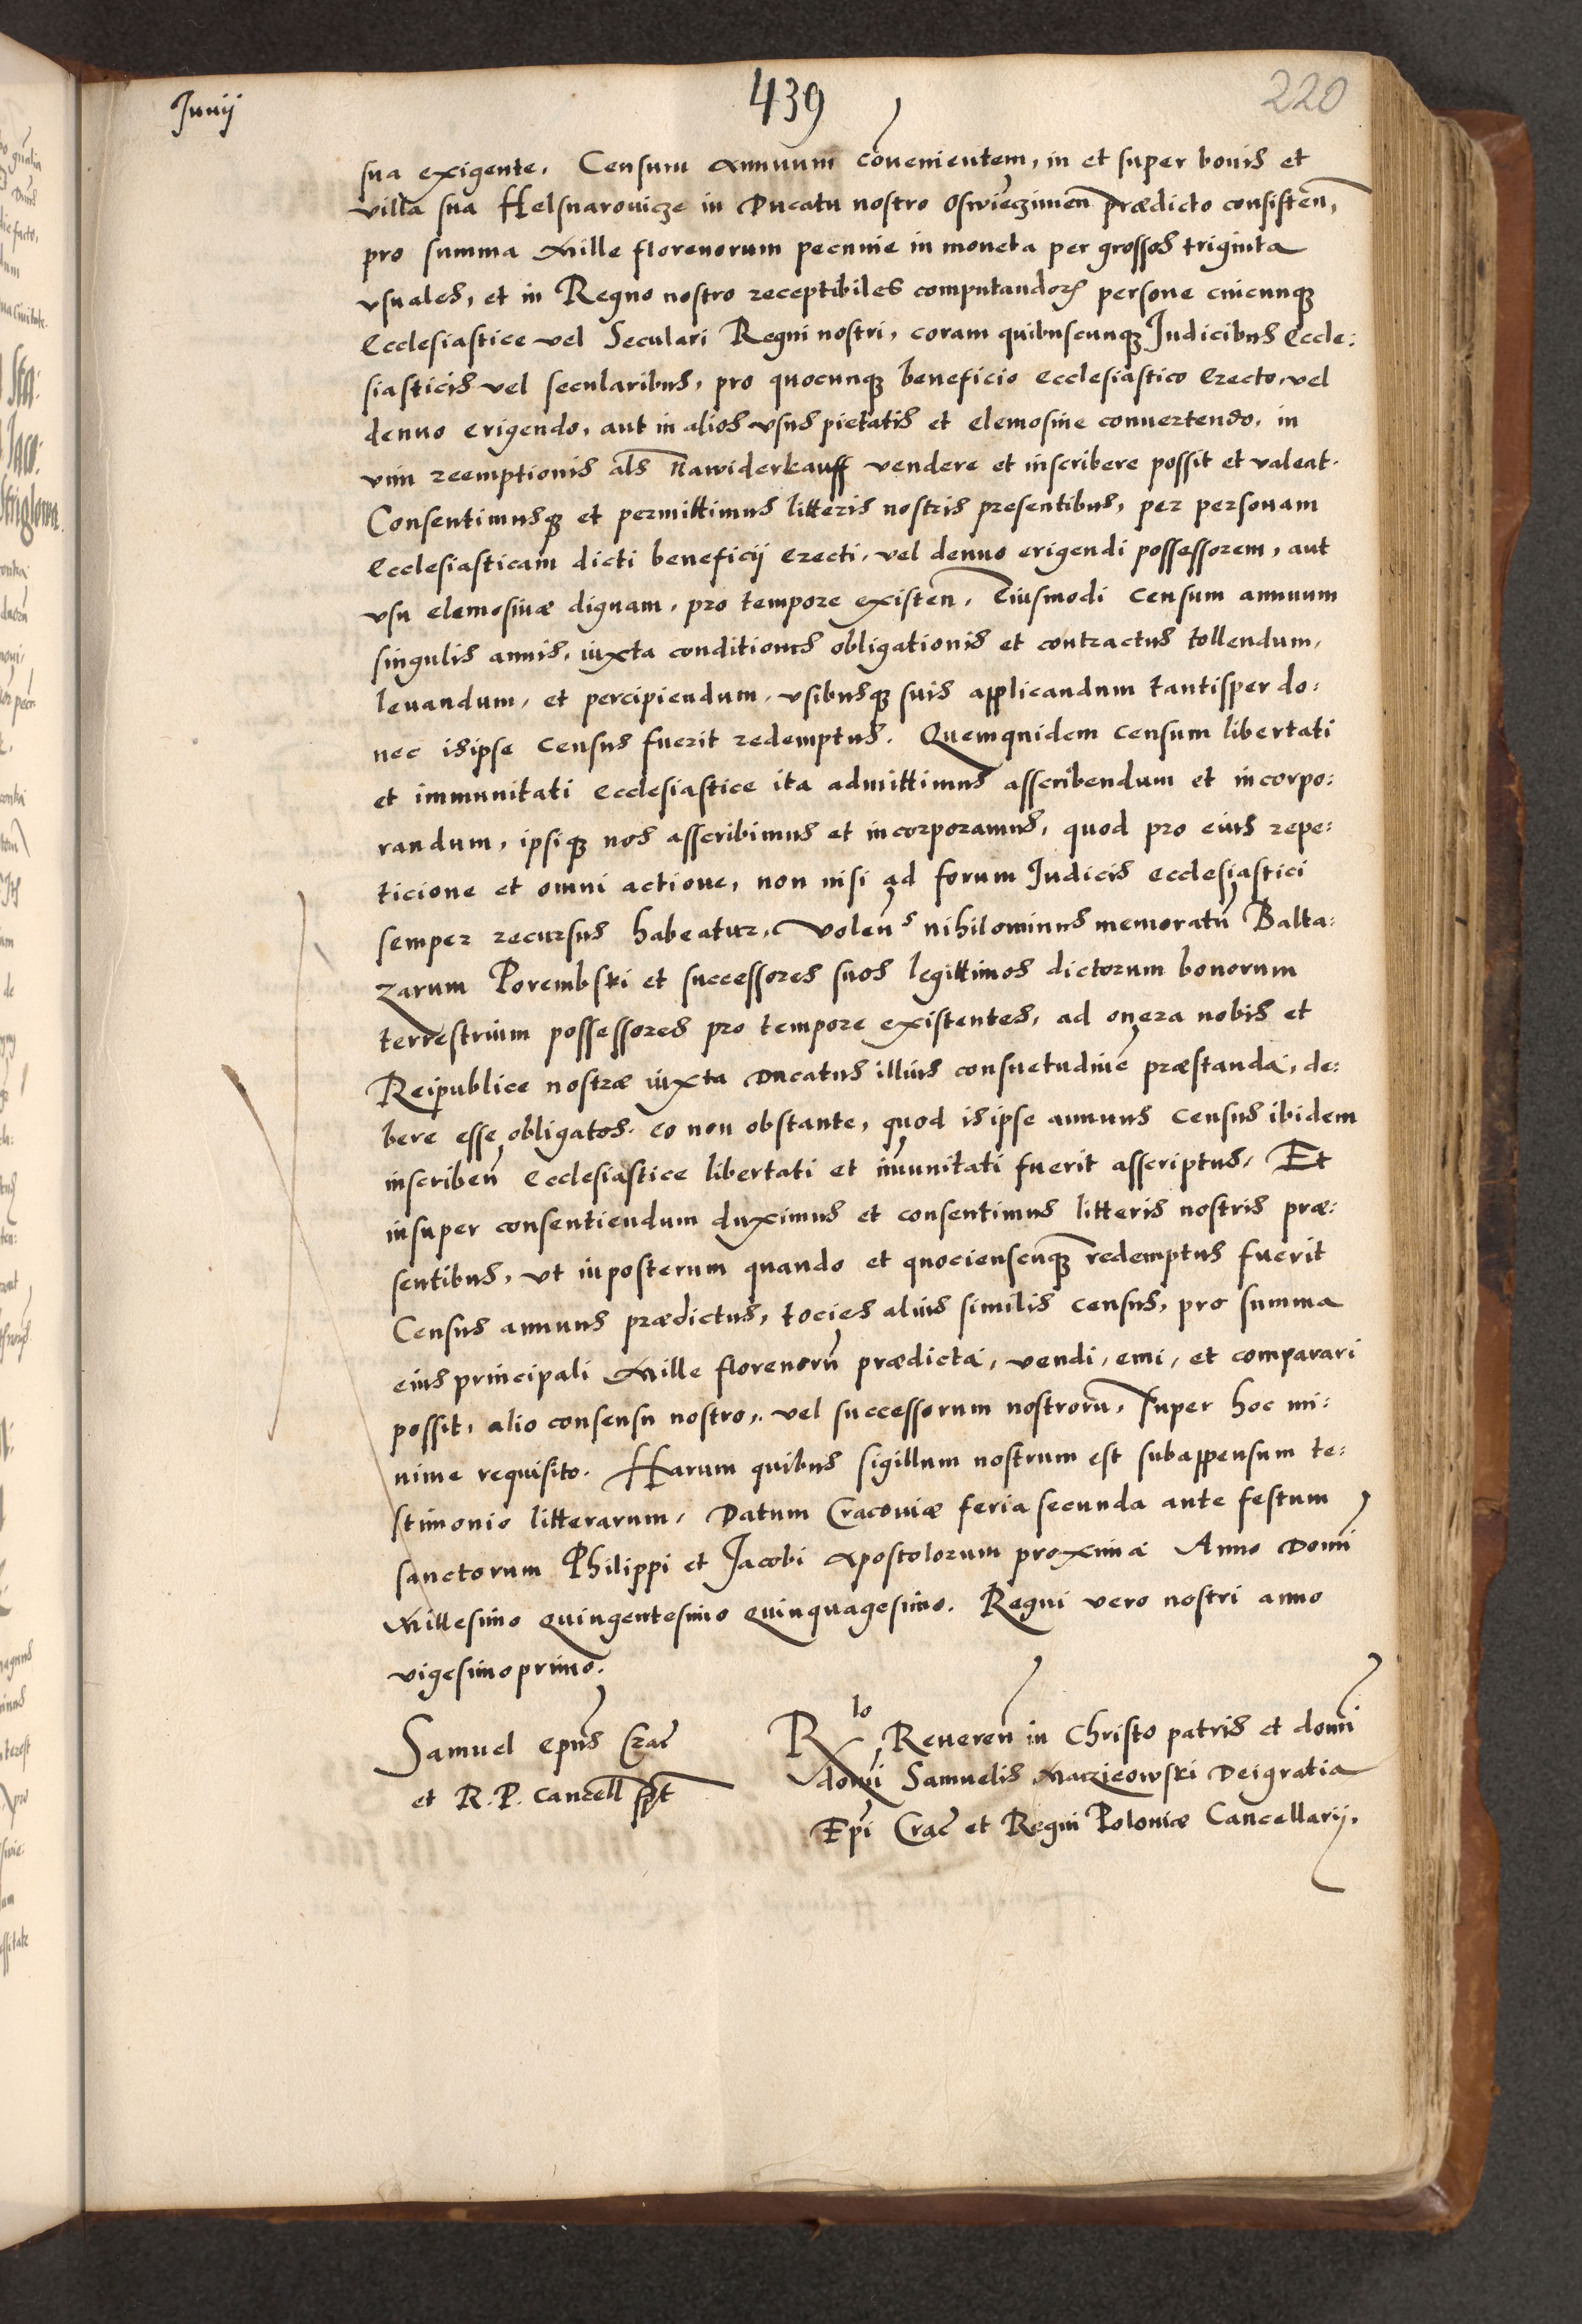 Junij
439
220
sua exigente, Censum Annuum co͞uenientem, in et super bonis et
villa sua Helsnarouicze in Ducatu nostro Oswieczimen͞ prædicto consisten͞,
pro summa Mille florenorum pecunie in moneta per grossos triginta
vsuales, et in Regno nostro receptibiles computandorꝝ persone cuicunqꝫ
Ecclesiastice vel Seculari Regni nostri, coram quibuscunqꝫ Judicibus Eccle:
siasticis vel secularibus, pro quocunqꝫ beneficio ecclesiastico Erecto, vel
denuo erigendo, aut in alios vsus pietatis et elemosine conuertendo, in
vim reemptionis al͞s Nawiderkauff vendere et inscribere possit et valeat.
Consentimusqꝫ et permittimus litteris nostris presentibus, per personam
Ecclesiasticam dicti beneficij Erecti, vel denuo erigendi possessorem, aut
vsu elemosinæ dignam, pro tempore existen͞, Eiusmodi Censum annuum
singulis annis, iuxta conditiones obligationis et contractus tollendum,
leuandum, et percipiendum, vsibusqꝫ suis applicandum tantisper do:
nec isipse Census fuerit redemptus. Quemquidem Censum libertati
et immunitati Ecclesiastice ita admittimus asscribendum et incorpo:
randum, ipsiqꝫ nos asscribimus et incorporamus, quod pro eius repe:
ticione et omni actione, non nisi ad forum Judicis ecclesiastici
semper recursus habeatur, Volen͞s nihilominus memoratu͞ Balta:
zarum Porembski et successores suos legittimos dictorum bonorum
terrestrium possessores pro tempore existentes, ad onera nobis et
Reipublice nostræ iuxta Ducatus illius consuetudine͞ præstanda, de:
bere esse obligatos. eo non obstante, quod isipse annuus Census ibidem
inscriben͞ Ecclesiastice libertati et im͞unitati fuerit asscriptus, Et
insuper consentiendum duximus et consentimus litteris nostris præ:
sentibus, vt inposterum quando et quociescunqꝫ redemptus fuerit
Census annuus prædictus, tocies alius similis Census, pro summa
eius principali Mille florenoru͞ prædicta, vendi, emi, et comparari
possit, alio consensu nostro, vel successorum nostroru͞, super hoc mi:
nime requisito. Harum quibus sigillum nostrum est subappensum te:
stimonio litterarum, Datum Cracouiæ feria secunda ante festum
sanctorum Philippi et Jacobi Apostolorum proxima Anno Domi͞
Millesimo Quingentesimo Quinquagesimo. Regni vero nostri anno
vigesimoprimo.
Samuel ep͞us Crac͞
et R. P. Cancell͞ ss͞t
R͡lo Reueren͞ in Christo patris et domi͞
domi͞ Samuelis Maczieowski Deigratia
Ep͞i Crac͞ et Regni Poloniæ Cancellarij.